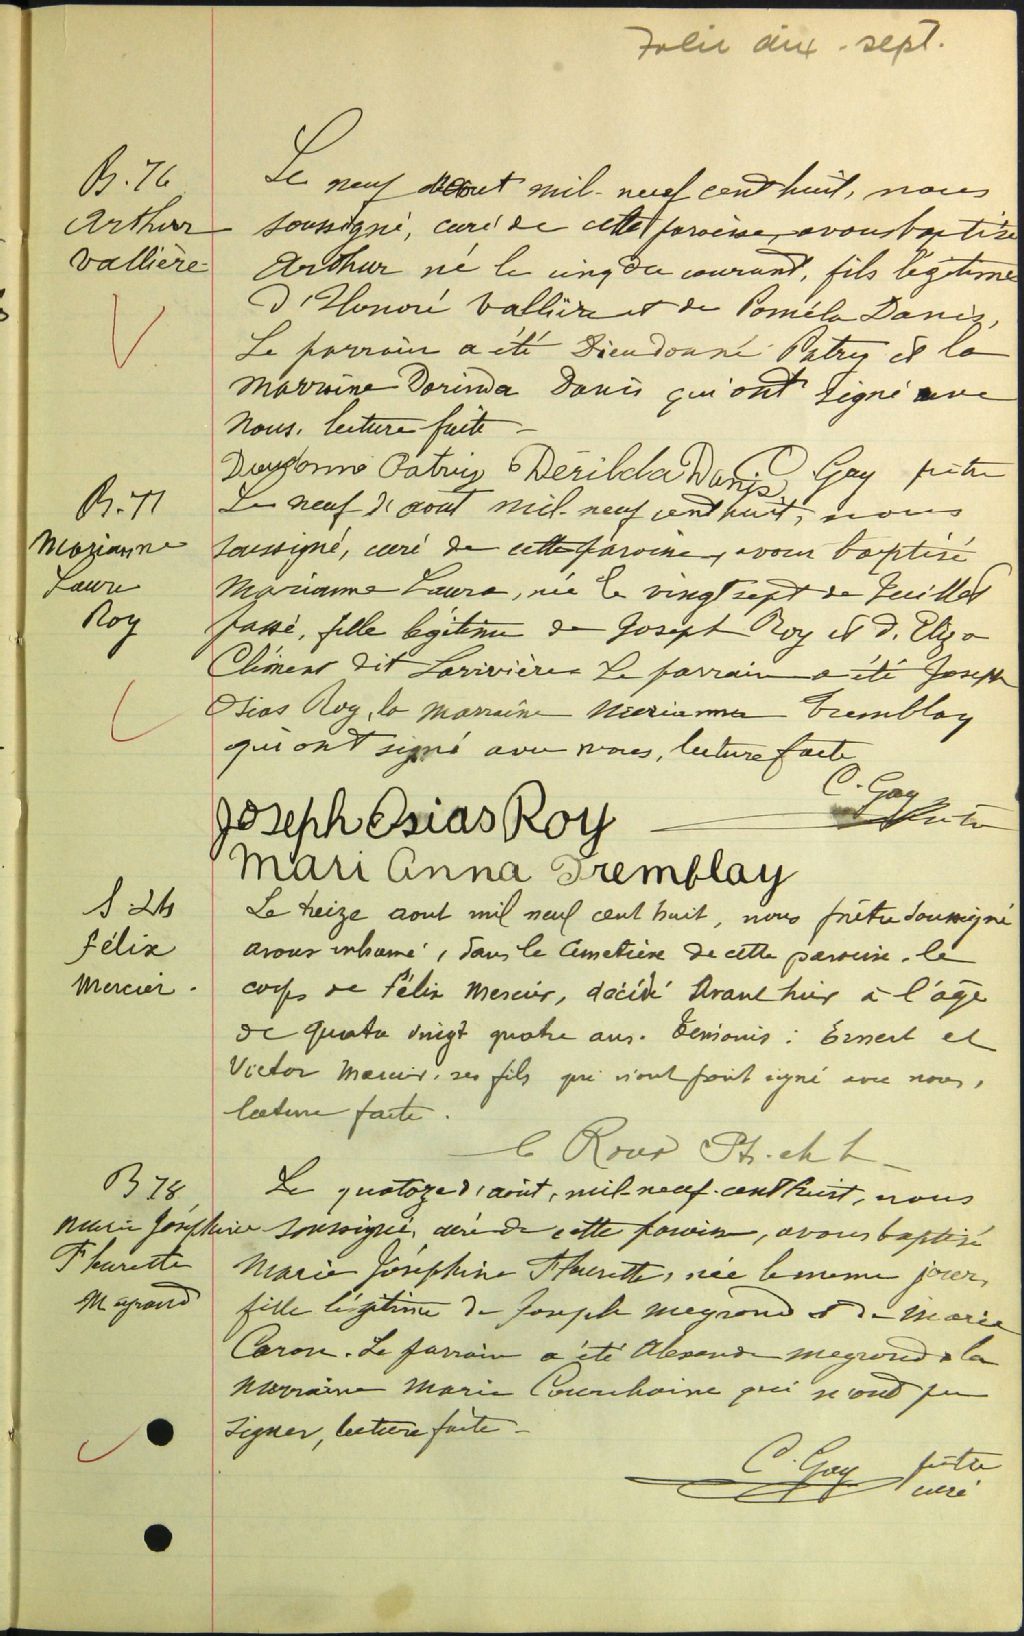 Folio dix-sept.
B. 76
Arthur
Vallière
Le neuf aout mil-neuf cent huit, nous
soussigné, curé de cette paroisse, avons baptisé
Arthur né le cinq du courant, fils légitime
d'Honoré Vallière et de Poméla Danis,
Le parrain a été Dieudonné Patry et la
marraine Dorinda Danis qui ont signé avec
nous, lecture faite -
Dieudonné Patry Dérilda Danis C. Gay ptre
B. 77
Marianne
Laura
Roy
Le neuf d'aout mil-neuf cent huit, nous
soussigné, curé de cette paroisse, avons baptisé
Marianne Laura, née le vingt sept de Juillet
passé, fille légitime de Joseph Roy et d'Eliza
Clément dit Larivière. Le parrain a été Joseph
Osias Roy, la marraine Marianna Tremblay
qui ont signé avec nous, lecture faite
C. Gay
Joseph Osias Roy
Mari Anna Tremblay
S. 24
Félix
Mercier.
Le treize aout mil neuf cent huit, nous prêtre soussigné
avons inhumé, dans le cimetière de cette paroisse, le
corps de Félix Mercier, décédé avant hier à l'âge
de quatre vingt quatre ans. Témoins: Ernest et
Victor Mercier, ses fils qui n'ont point signé avec nous,
lecture faite.
B 78
Marie Joséphine
Fleurette
Magrand
Le quatorze d'août, mil-neuf-cent huit, nous
soussigné, curé de cette paroisse, avons baptisé
Marie Joséphine Fleurette, née le meme jour,
fille légitime de Joseph Megrand et de Marie
Caron. Le parrain a été Alexandre Megrand & la
marraine Marie Courchaine qui n'ont pu
signer, lecture faite -
C. Gay ptre
curé